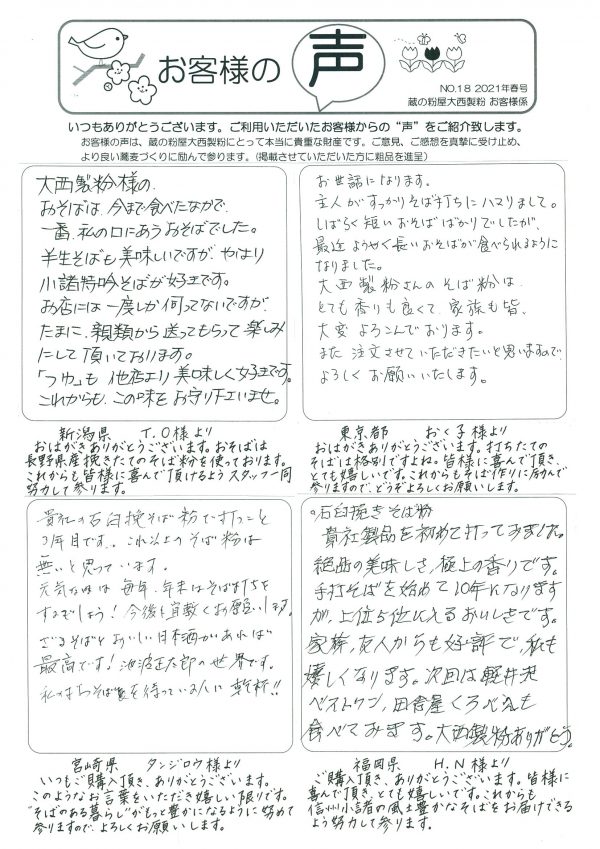 お客様の声
NO.18 2021年春号
蔵の粉屋大西製粉 お客様係
いつもありがとうございます。ご利用いただいたお客様からの“声”をご紹介致します。
お客様の声は、蔵の粉屋大西製粉にとって本当に貴重な財産です。ご意見、ご感想を真摯に受け止め、
より良い蕎麦づくりに励んで参ります。(掲載させていただいた方に粗品を進呈)
大西製粉様の
おそばは、今まで食べたなかで、
一番、私の口にあうおそばでした。
半生そばも美味しいですが、やはり
小諸特吟そばが好きです。
お店には一度しか伺ってないですが
たまに、親類から送ってもらって楽しみ
にして頂いております。
「つゆ」も他店より美味しく好きです。
これからも、この味をお守り下さいませ。
新潟県 T.O様より
おはがきありがとうございます。おそばは
長野県産挽きたてのそば粉を使っております。
これからも皆様に喜んで頂けるようスタッフ一同
努力して参ります。
お世話になります。
主人がすっかりそば打ちにハマりまして。
しばらく短いおそばばかりでしたが、
最近ようやく長いおそばが食べられるように
なりました。
大西製粉さんのそば粉は、
とても香りも良くて、家族も皆、
大変よろこんでおります。
また注文させていただきたいと思いますので、
よろしくお願いいたします。
東京都 おく子様より
おはがきありがとうございます。打ちたての
そばは格別ですよね。皆様に喜んで頂き、
とても嬉しいです。これからもそば作りに励んで
参りますので、どうぞよろしくお願いします。
貴社の石臼挽そば粉で打つこと
3年目です。これ以上のそば粉は
無いと思っています。
元気な内は毎年、年末はそば打ちを
するでしょう!今後も宜敷くお願いします。
ざるそばとおいしい日本酒があれば
最高です!池波正太郎の世界です。
私の打ちそばを待っている人に乾杯!!
宮崎県 タンジロウ様より
いつもご購入頂き、ありがとうございます。
このようなお言葉をいただき嬉しい限りです。
“そばのある暮らし”がもっと豊かになるように努めて
参りますので、よろしくお願いします。
○石臼挽きそば粉
貴社製品を初めて打ってみました。
絶西の美味しさ、極上の香りです。
手打そばを始めて10年になります
が、上位5位に入るおいしさです。
家族、友人からも好評で、私も
嬉しくなります。次回は軽井沢
ベイストワン、田舎屋くろべえも
食べてみます。大西製粉ありがとう。
福岡県 H.N様より
ご購入頂き、ありがとうございます。皆様に
喜んで頂き、とても嬉しいです。これからも
信州小諸の風土豊かなそばをお届けできる
よう努力して参ります。